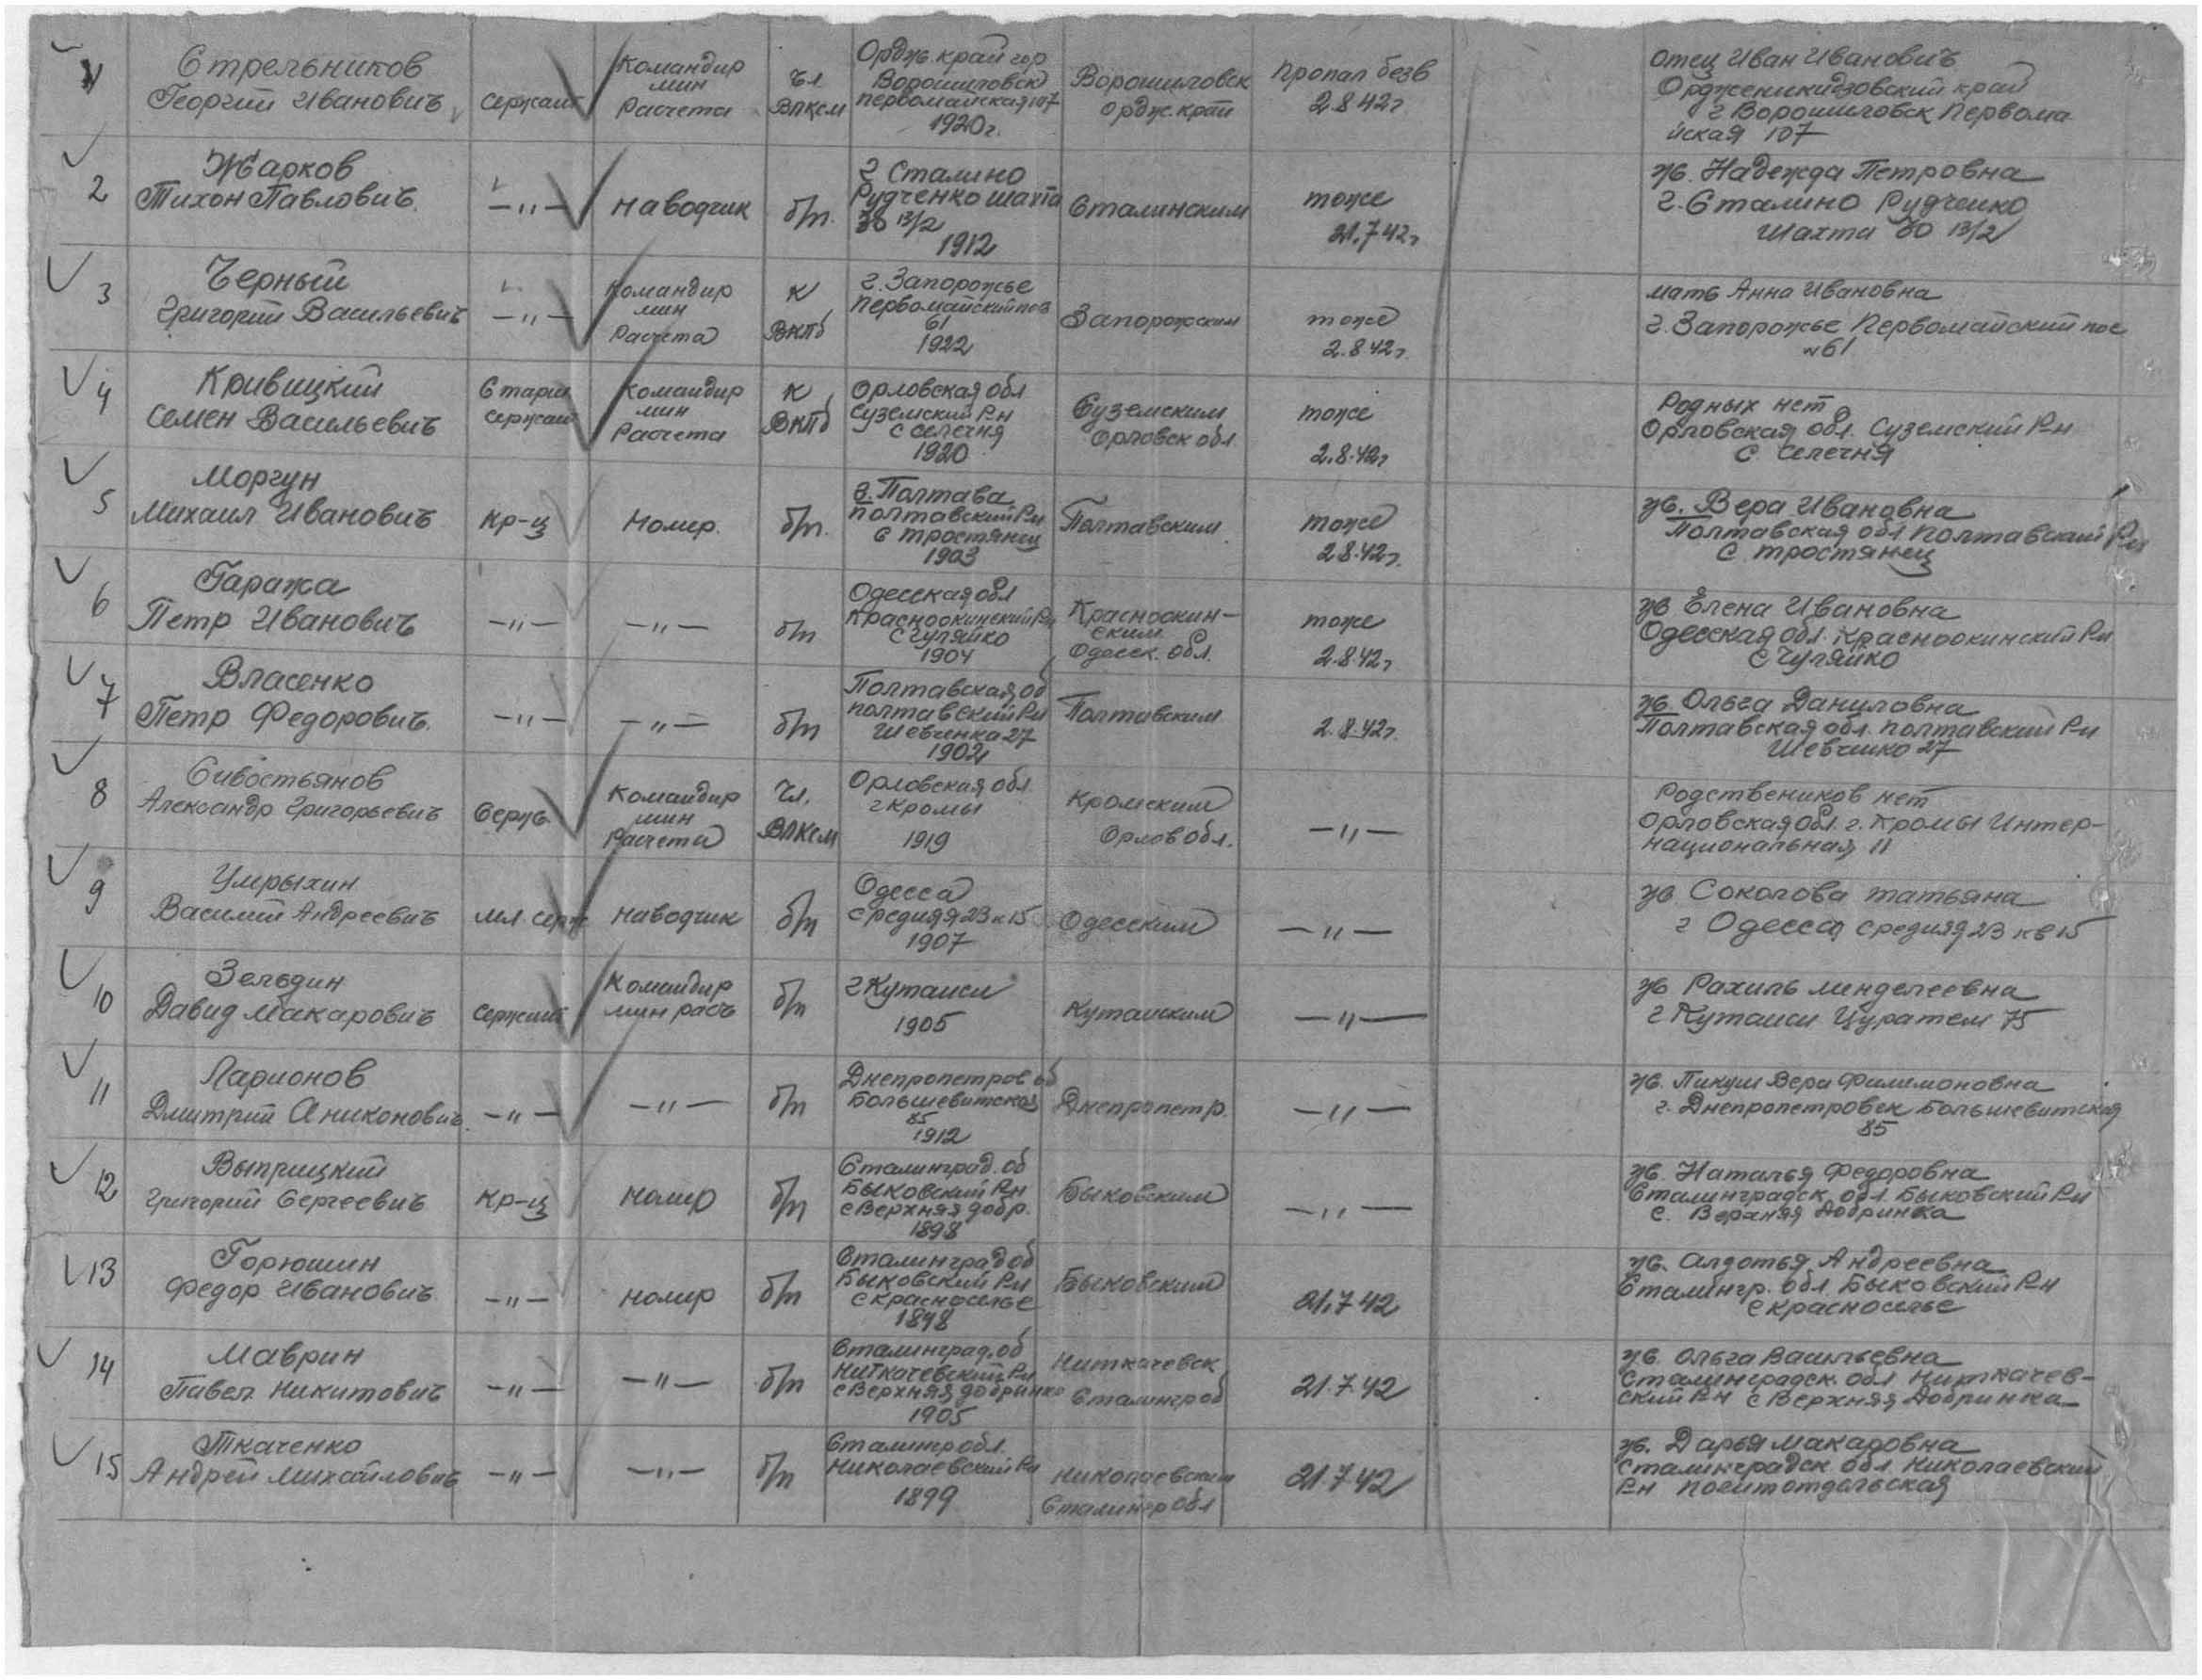 1
Стрельников
Георгий Иванович
сержант
Командир
мин
Расчета
чл
ВЛКСМ
Ордж. край гор
Ворошиловск
первомайская 107
1920г.
Ворошиловск
ордж. край
пропал безв
2.8.42г
отец Иван Иванович
Орджоникидзовский край
г Ворошиловск Первома
йская 107
2
Жарков
Тихон Павлович
—"—
наводчик
б/п.
г Сталино
Рудченко шахта
30 13/2
1912
Сталинским
тоже
21.7.42г
ж. Надежда Петровна
г. Сталино Рудченко
шахта 30 13/2
3
Черный
Григорий Васильевич
—"—
Командир
мин
Расчета
К
ВКПб
г. Запорожье
Первомайский пос
61
1922
Запорожским
тоже
2.8.42г
мать Анна Ивановна
г. Запорожье Первомайский пос
№61
4
Кривицкий
Семен Васильевич
Старш
сержант
Командир
мин
Расчета
К
ВКПб
Орловская обл
Суземский Р-н
с селечня
1920
Суземским
Орловск обл
тоже
2.8.42г
Родных нет
Орловская обл. Суземский Р-н
с. селечня
5
Моргун
Михаил Иванович
Кр-ц
Номер.
б/п.
г. Полтава
полтавский Р-н
с тростянец
1903
Полтавским
тоже
2.8.42г.
ж. Вера Ивановна
Полтавская обл. полтавский Р-н
с. тростянец
6
Гаража
Петр Иванович
—"—
—"—
б/п
Одесская обл
Красноокинский Р-н
с гуляйко
1904
Красноокин-
ским
Одесск. обл.
тоже
2.8.42г
ж Елена Ивановна
Одесская обл. Красноокинский Р-н
с Чуляйко
7
Власенко
Петр Федорович
—"—
—"—
б/п
Полтавская об
полтавский Р-н
Шевченка 27
1902
Полтавским
2.8.42г.
ж. Ольга Даниловна
Полтавская обл. полтавский Р-н
Шевченко 27
8
Сивостьянов
Александр Григорьевич
Серж
Командир
мин
Расчета
Чл.
ВЛКСМ
Орловская обл.
г Кромы
1919
Кромским
Орлов обл.
—"—
Родствеников нет
Орловская обл. г. Кромы Интер-
национальная 11
9
Умрыхин
Василий Андреевич
мл. серж
наводчик
б/п
Одесса
средняя 23 к 15
1907
Одесским
—"—
ж Соколова татьяна
г Одесса средняя 23 кв 15
10
Зельдин
Давид Макарович
сержант
Командир
мин расч
б/п
г Кутаиси
1905
Кутаиским
—"—
ж Рахиль менделеевна
г Кутаиси Цуратели 75
11
Ларионов
Дмитрий Аниконович
—"—
—"—
б/п
Днепропетров об
Большевитская
85
1912
Днепропетр.
—"—
ж. Пикуш Вера Филимоновна
г. Днепропетровск Большевитская
85
12
Выприцкий
Григорий Сергеевич
Кр-ц
номер
б/п
Сталинград. об
Быковский Р-н
с Верхняя добр.
1898
Быковским
—"—
ж. Наталья Федоровна
Сталинградск. обл. Быковский Р-н
с. Верхняя Добринка
13
Горюшин
Федор Иванович
—"—
номер
б/п
Сталинград об
Быковский Р-н
с красноселье
1898
Быковским
21.7.42
ж. Алдотья Андреевна
Сталингр. обл. Быковский Р-н
с красноселье
14
Маврин
Павел Никитович
—"—
—"—
б/п
Сталинград. об
Ниткачевский Р-н
с Верхняя добринка
1905
Ниткачевск
Сталингр об
21.7.42
ж. Ольга Васильевна
Сталинградск. обл. Ниткачев-
ский Р-н с Верхняя Добринка
15
Ткаченко
Андрей Михайлович
—"—
—"—
б/п
Сталингр обл.
Николаевский Р-н
1899
Николаевским
Сталингр обл
21.7.42
ж. Дарья Макаровна
Сталинградск обл. Николаевский
Р-н политотдельская